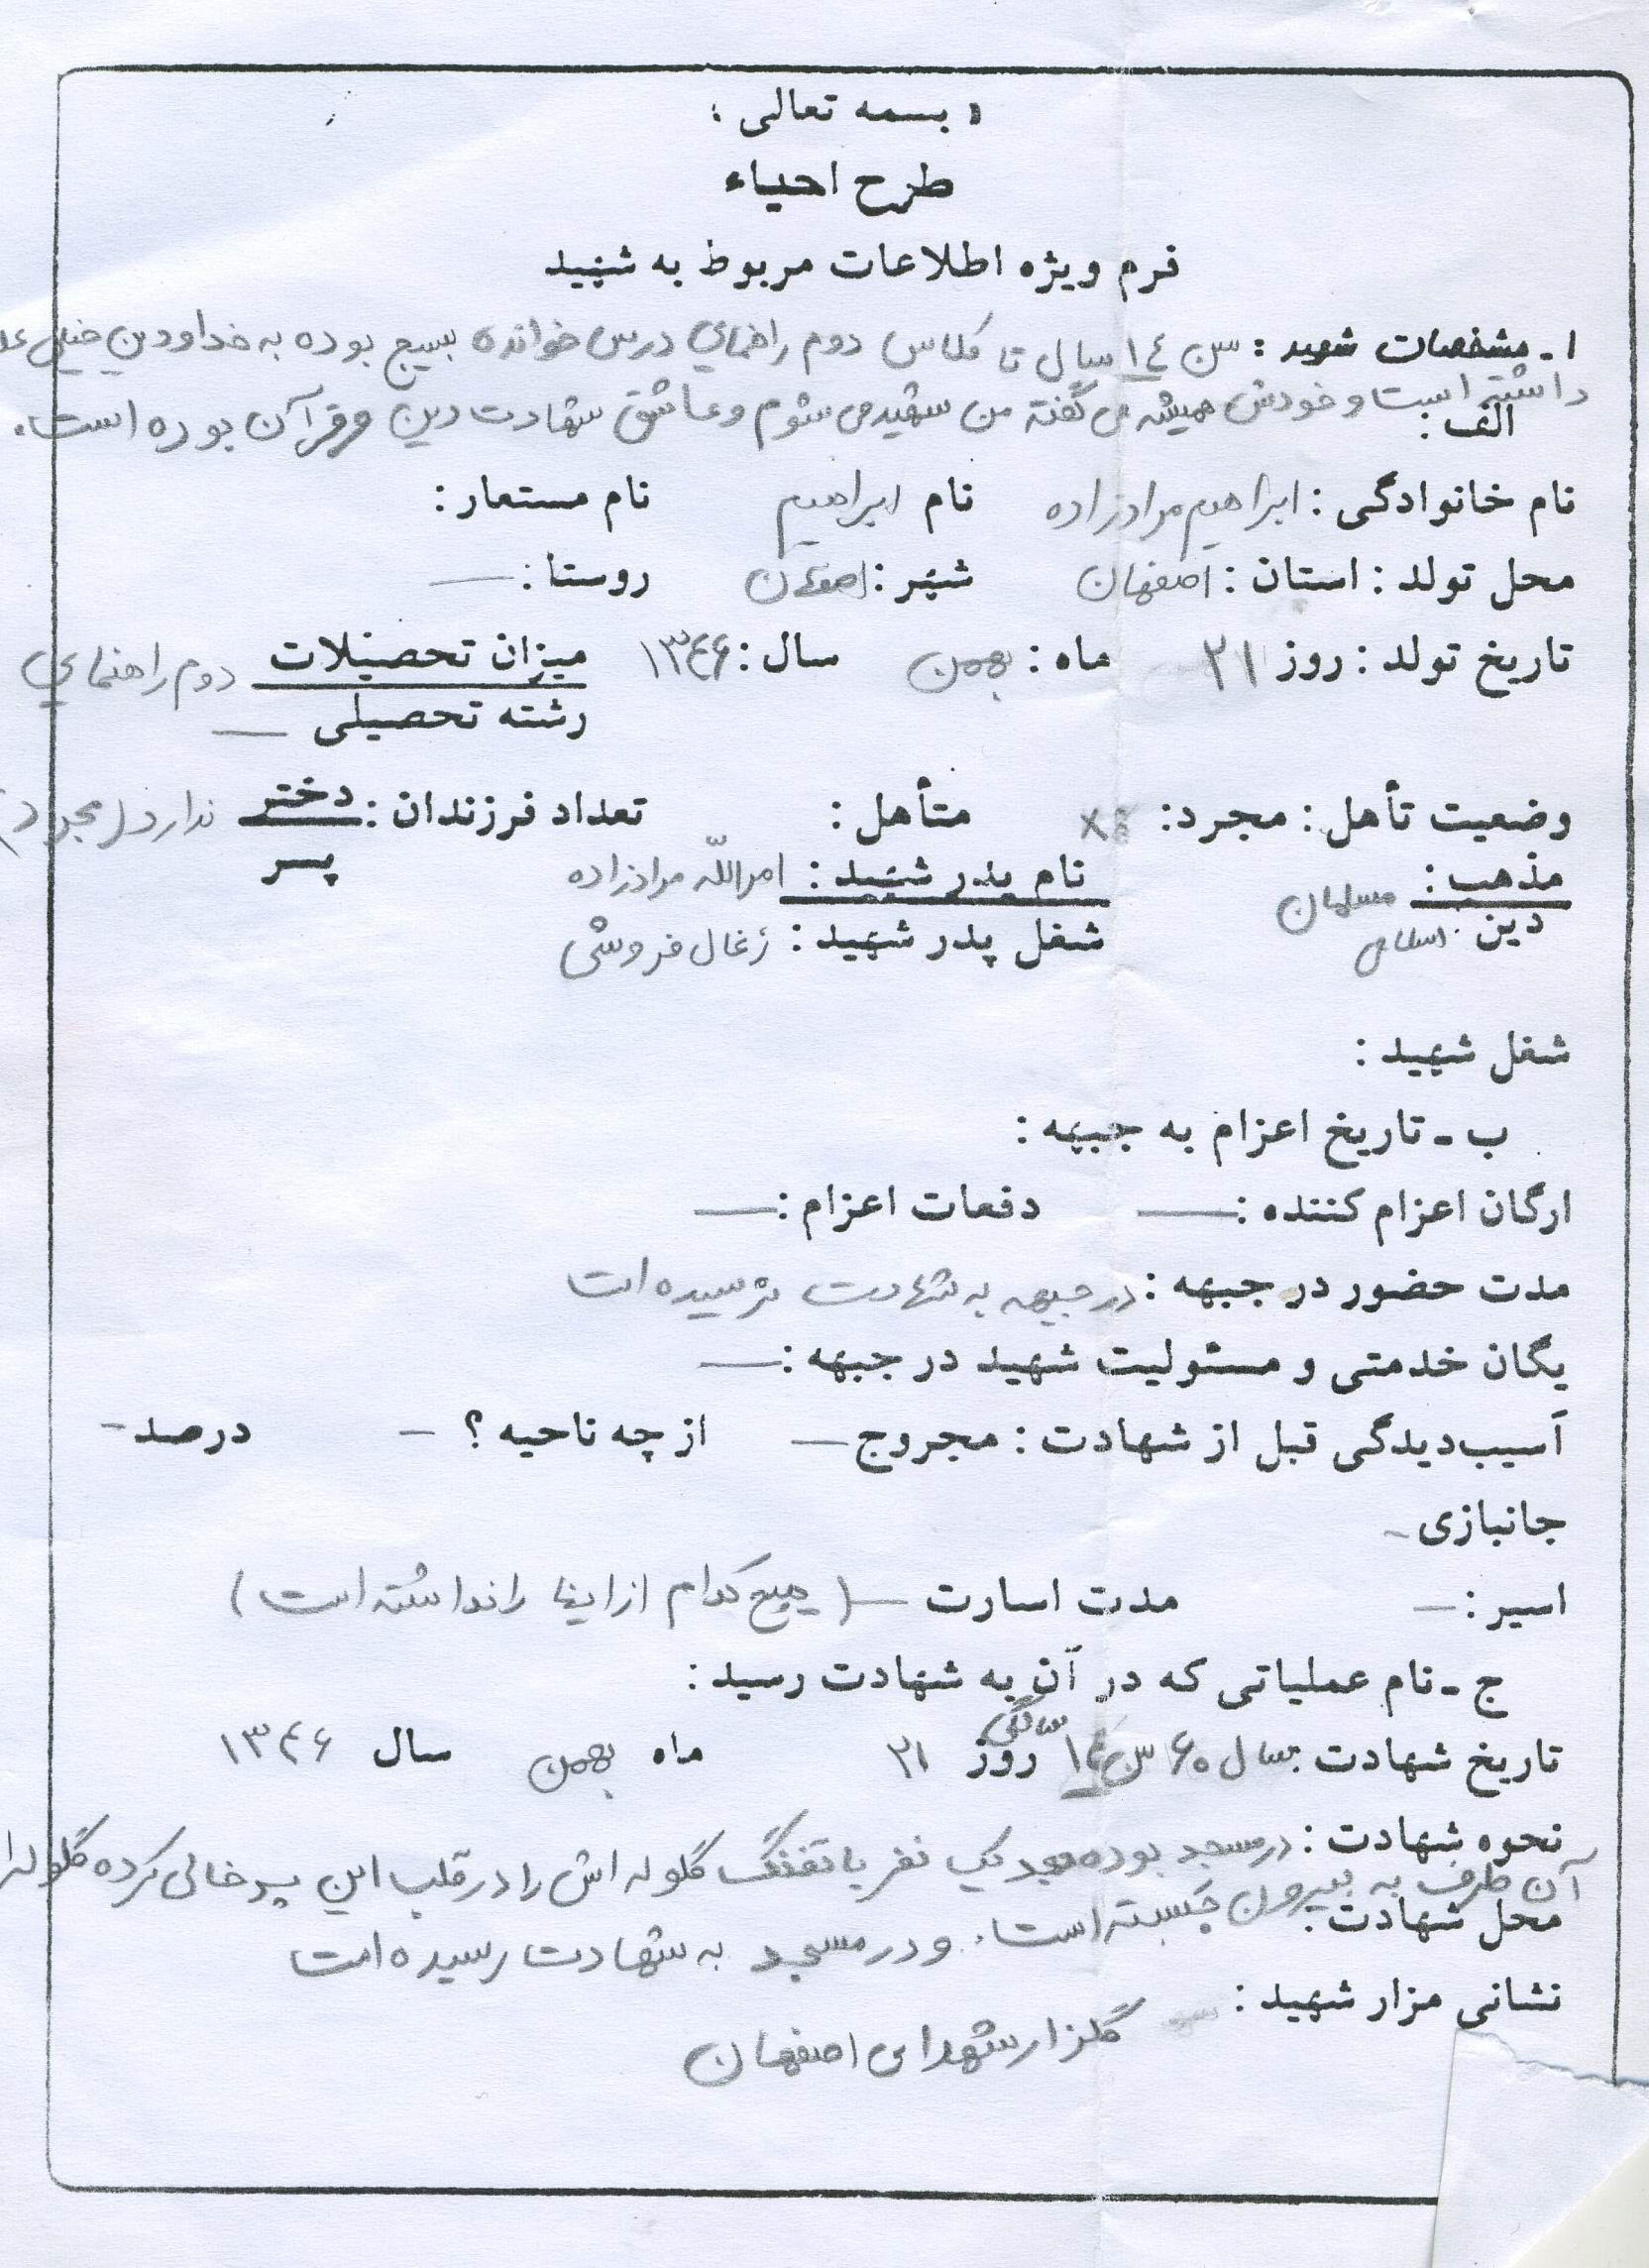 « بسمه تعالی :
طرح احیاء
فرم ویژه اطلاعات مربوط به شهید
۱ـ مشخصات شهید : سن ۱٤ سال تا کلاس دوم راهنمایی درس خوانده بسیج بوده به خدا و دین خیلی
داشته است و خودش همیشه می گفته من شهید می شوم و عاشق شهادت دین و قرآن بوده است.
الف :
نام خانوادگی : ابراهیم مرادزاده نام ابراهیم نام مستعار :
محل تولد : استان : اصفهان شهر : اصفهان روستا : —
تاریخ تولد : روز ۲۱ ماه : بهمن سال : ۱۳٤۶ میزان تحصیلات دوم راهنمایی
رشته تحصیلی —
وضعیت تأهل : مجرد : x متأهل : تعداد فرزندان : دختر ندارد (مجرد)
پسر
مذهب : مسلمان نام پدر شهید : امرالله مرادزاده
دین : اسلام شغل پدر شهید : زغال فروشی
شغل شهید :
ب ـ تاریخ اعزام به جبهه :
ارگان اعزام کننده : — دفعات اعزام : —
مدت حضور در جبهه : در جبهه به شهادت نرسیده است
یگان خدمتی و مسئولیت شهید در جبهه : —
آسیب‌دیدگی قبل از شهادت : مجروح — از چه ناحیه ؟ — درصد –
جانبازی –
اسیر : — مدت اسارت — ( هیچ کدام از اینها را نداشته است )
ج ـ نام عملیاتی که در آن به شهادت رسید :
تاریخ شهادت : سال ۶۰ سن ۱٤ سالگی روز ۲۱ ماه بهمن سال ۱۳٤۶
نحوه شهادت : در مسجد بوده یک نفر با تفنگ گلوله اش را در قلب این پسر خالی کرده گلوله از
آن طرف به بیرون جسته است. و در مسجد به شهادت رسیده است
محل شهادت :
نشانی مزار شهید :
گلزار شهدای اصفهان